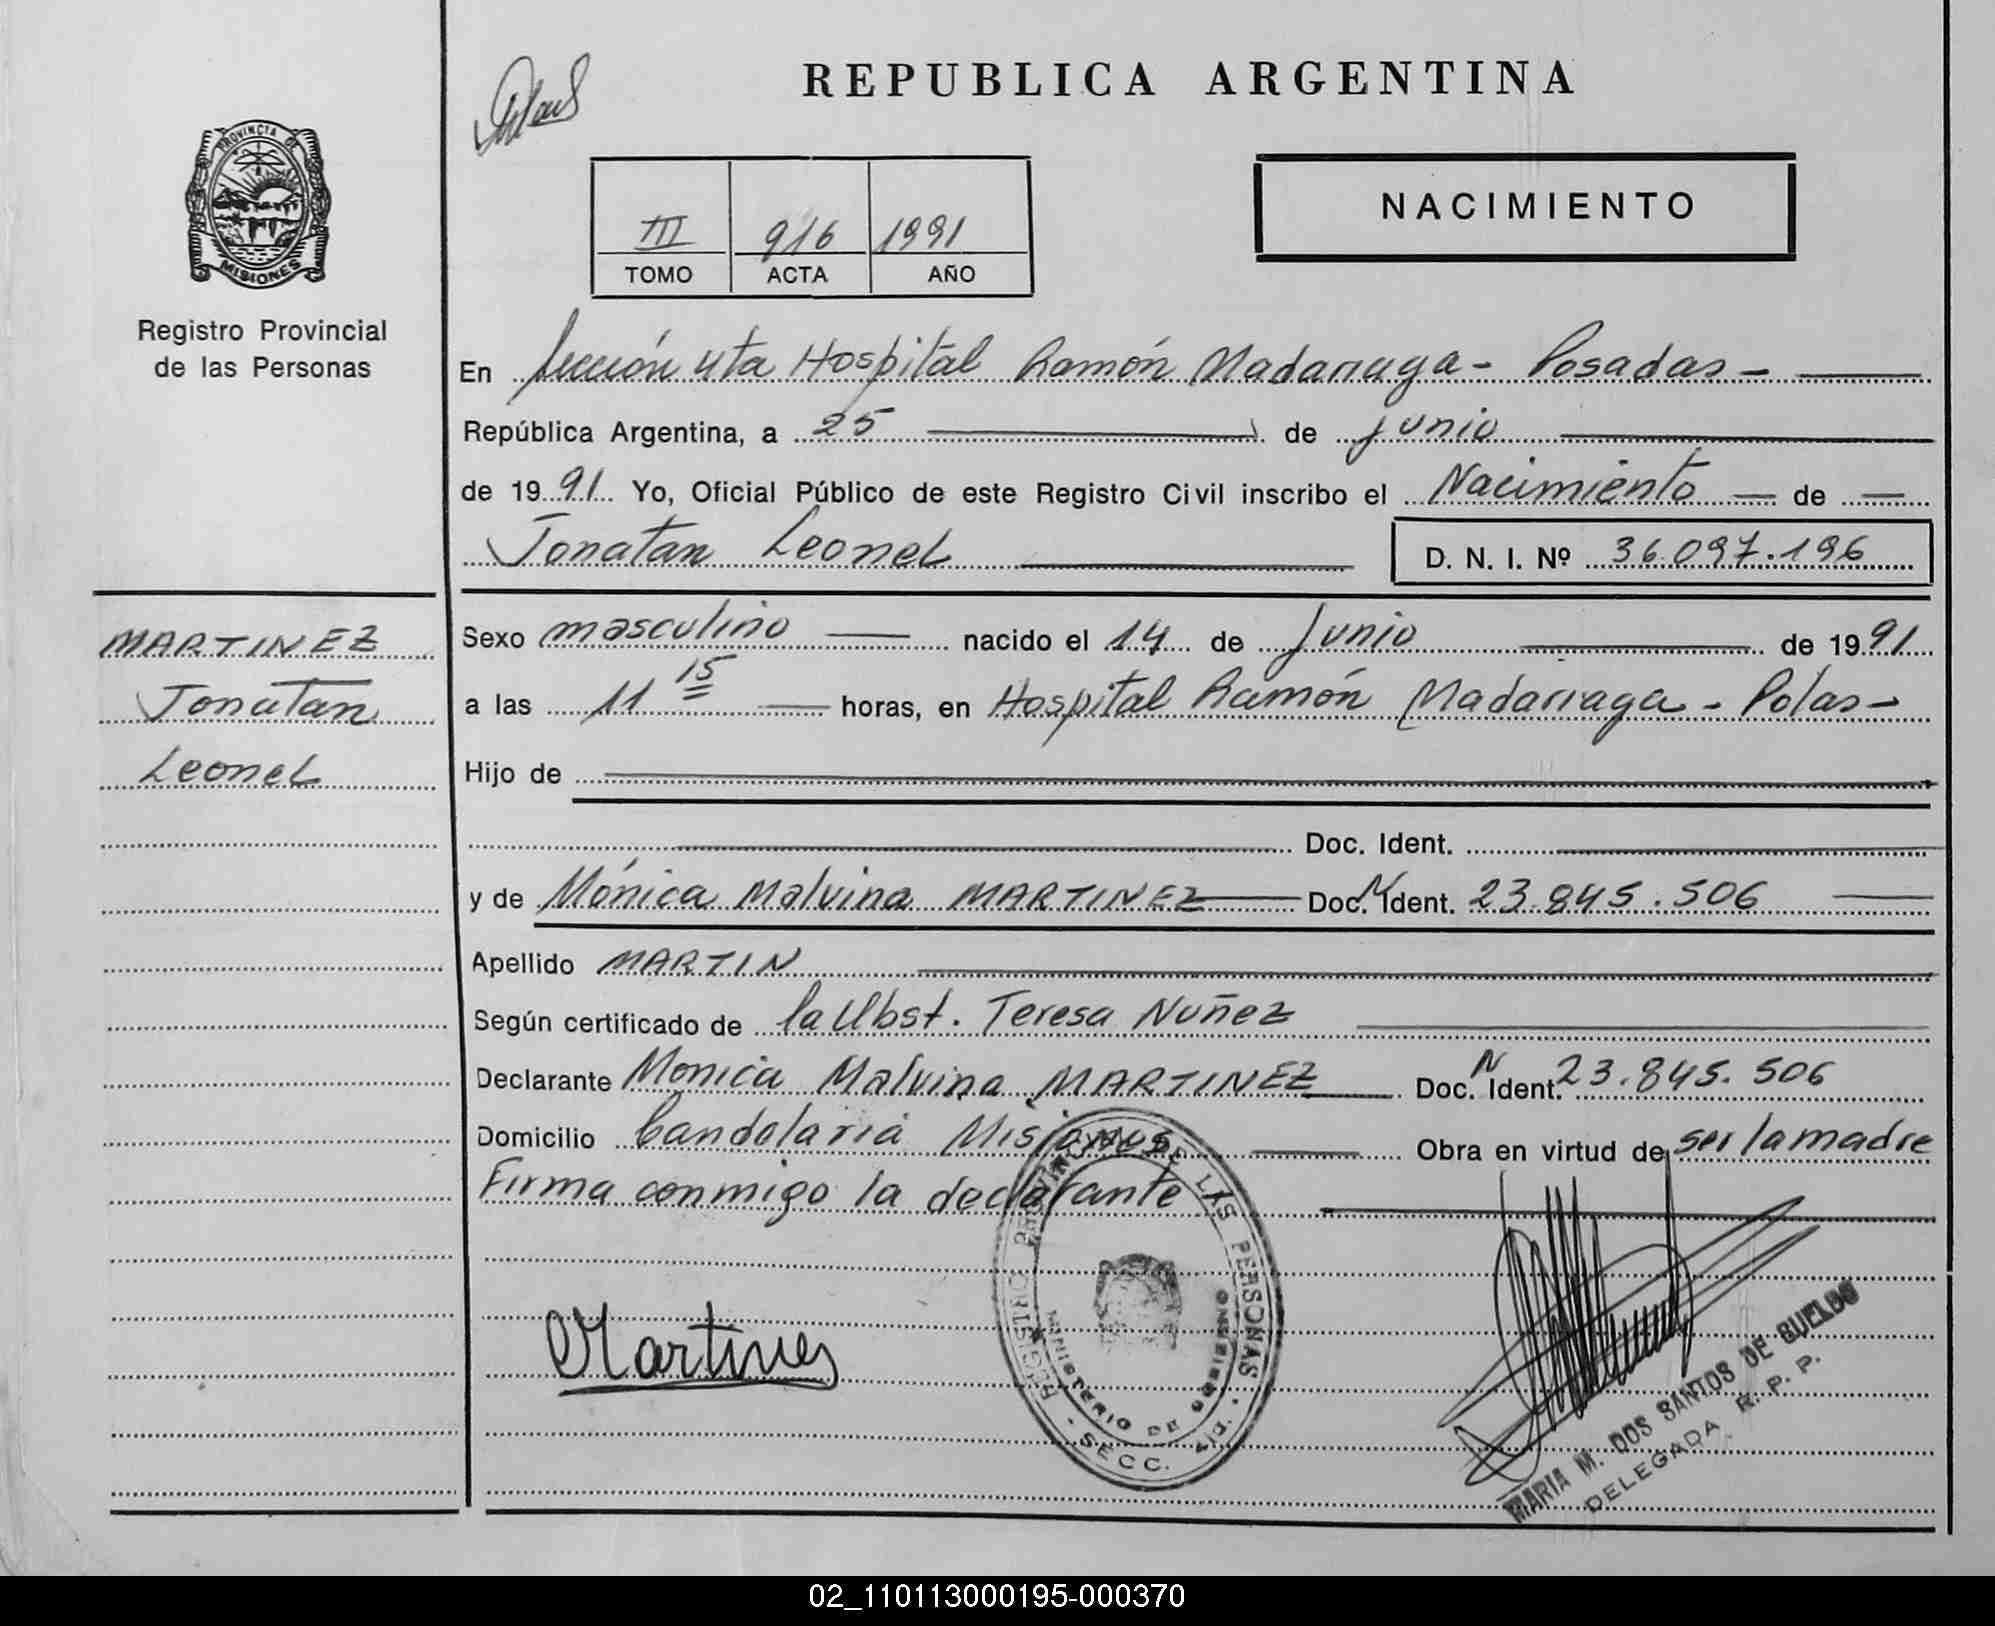 REPUBLICA ARGENTINA
PROVINCIA DE
MISIONES
Registro Provincial
de las Personas
III 916 1991
TOMO ACTA AÑO
NACIMIENTO
En Sección 4ta Hospital Ramón Madariaga - Posadas -
República Argentina, a 25 de junio
de 1991 Yo, Oficial Público de este Registro Civil inscribo el Nacimiento de
Jonatan Leonel D. N. I. Nº 36.097.196
MARTINEZ
Jonatan
Leonel
Sexo masculino nacido el 14 de Junio de 1991
a las 11 15 horas, en Hospital Ramón Madariaga - Pdas -
Hijo de
Doc. Ident.
y de Mónica Malvina MARTINEZ Doc. N Ident. 23.845.506
Apellido MARTIN
Según certificado de la Obst. Teresa Nuñez
Declarante Monica Malvina MARTINEZ Doc. N Ident. 23.845.506
Domicilio Candelaria Misiones Obra en virtud de ser la madre
Firma conmigo la declarante
Martinez
REGISTRO PROVINCIAL DE LAS PERSONAS
MINISTERIO DE GOBIERNO
SECC. 4ta.
MARIA M. DOS SANTOS DE BUELDO
DELEGADA R. P. P.
02_110113000195-000370